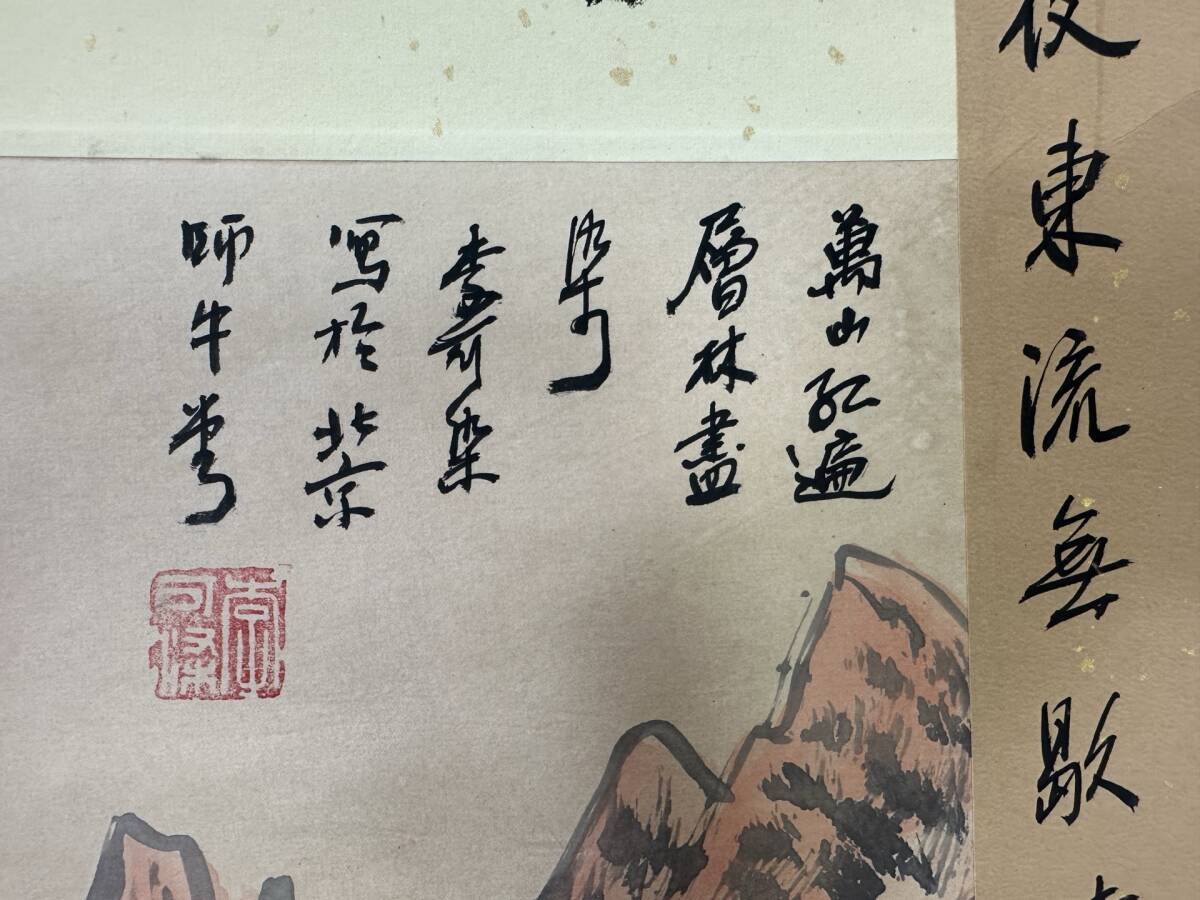 夜東流無歇
萬山紅遍
層林盡
染
李可染
寫於北京
師牛堂
李可染